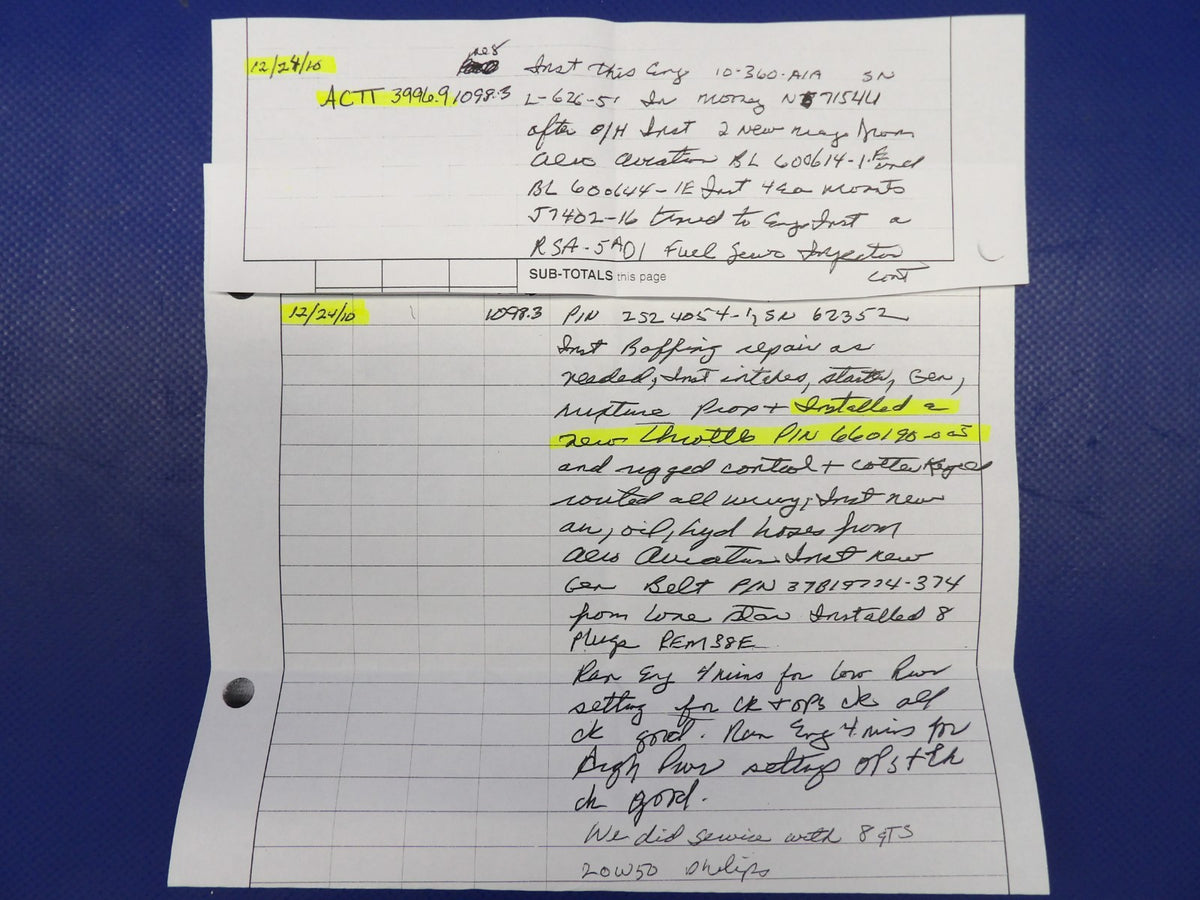 12/24/10 Inst this Eng IO-360-A1A SN
ACTT 3996.9 1098.3 L-626-51 In mooney N7154U
after O/H Inst 2 new mags from
Aero Aviation BL 600614-1 and
BL 600644-1E Inst 4 ea mounts
J7402-16 timed to Eng. Inst a
RSA-5AD1 Fuel Servo Injector
cont
SUB-TOTALS this page
12/24/10 1098.3 P/N 2524054-1, SN 62352
Inst Baffing repair as
needed, Inst intakes, starter, Gen,
mixture Prop + Installed a
new throttle P/N 660190-005
and rigged control + cotter Keyed
routed all wiring, Inst new
air, oil, hyd hoses from
Aero Aviation Inst new
Gen Belt P/N 37B19774-374
from Lone Star Installed 8
Plugs REM38E
Ran Eng 4 mins for low Pwr
setting for ck + ops ck all
ck good. Ran Eng 4 mins for
High Pwr settings OPS +
ck good.
We did service with 8 qts
20W50 Philips